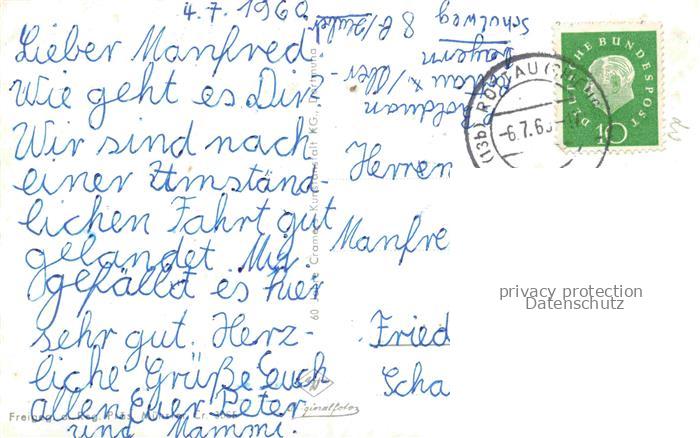 4.7.1960
Lieber Manfred.
Wie geht es Dir
Wir sind nach
einer Umständ-
lichen Fahrt gut
gelandet. Mir
gefällt es hier
sehr gut. Herz-
liche Grüße Euch
allen Euer Peter
und Mammi.
Schulweg 8
Bayern
Herren
Manfre
Fried
Scha
DEUTSCHE BUNDESPOST
10
(13b)
-6.7.60
60 Jahre Cramers Kunstanstalt KG., Dortmund
Originalfoto
privacy protection
Datenschutz